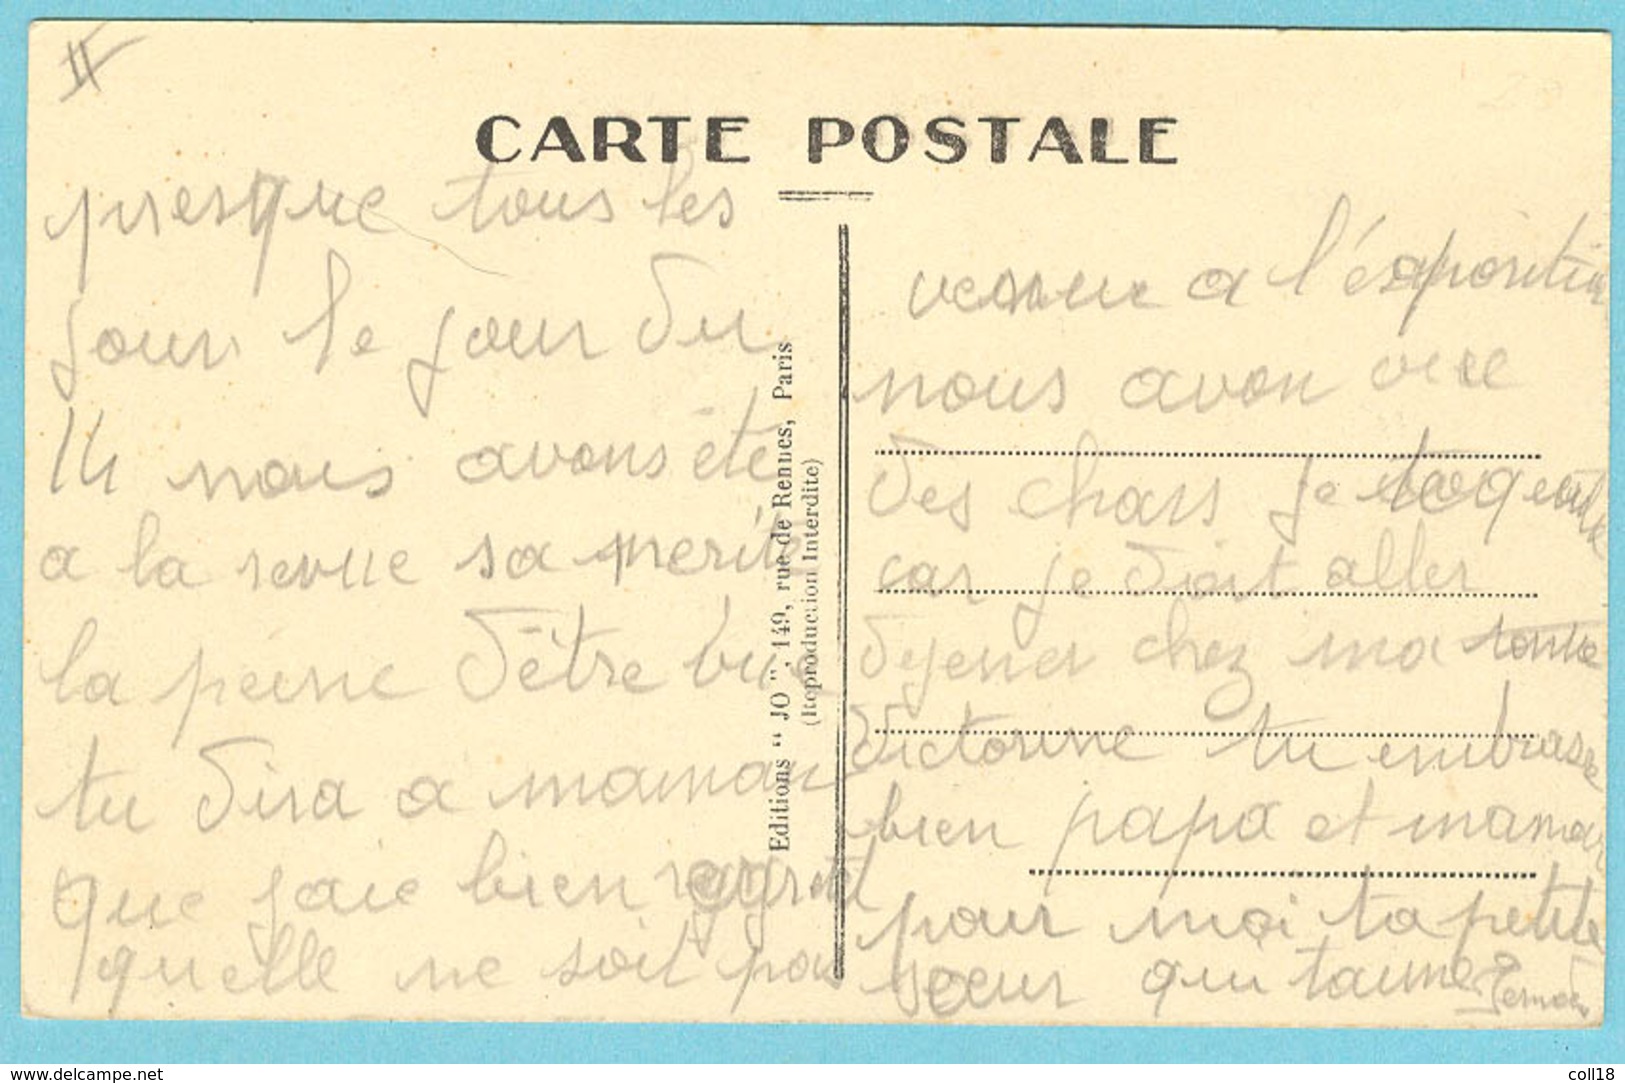 II
CARTE POSTALE
presque tous les
jour le jour du
14 nous avons été
a la revue sa merite
la peine d'être vue
tu dira a maman
que jaie bien regretté
quelle ne soit pas
Editions " JO ", 149, rue de Rennes, Paris
(Reproduction Interdite)
venue a l'éxposition
nous avon vue
des chars je te quitte
car je doit aller
dejener chez ma
Victorine tu embrase
bien papa et maman
pour moi ta petite
sœur qui taime
www.delcampe.net
coll18